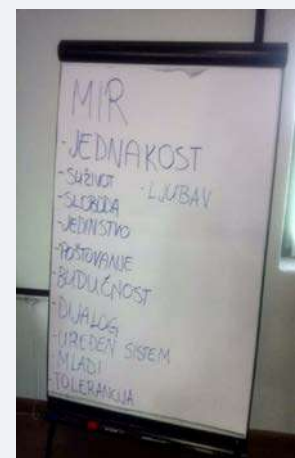 MIR
- JEDNAKOST
- SUŽIVOT
- LJUBAV
- SLOBODA
- JEDINSTVO
- POŠTOVANJE
- BUDUĆNOST
- DIJALOG
- UREĐEN SISTEM
- MLADI
- TOLERANCIJA